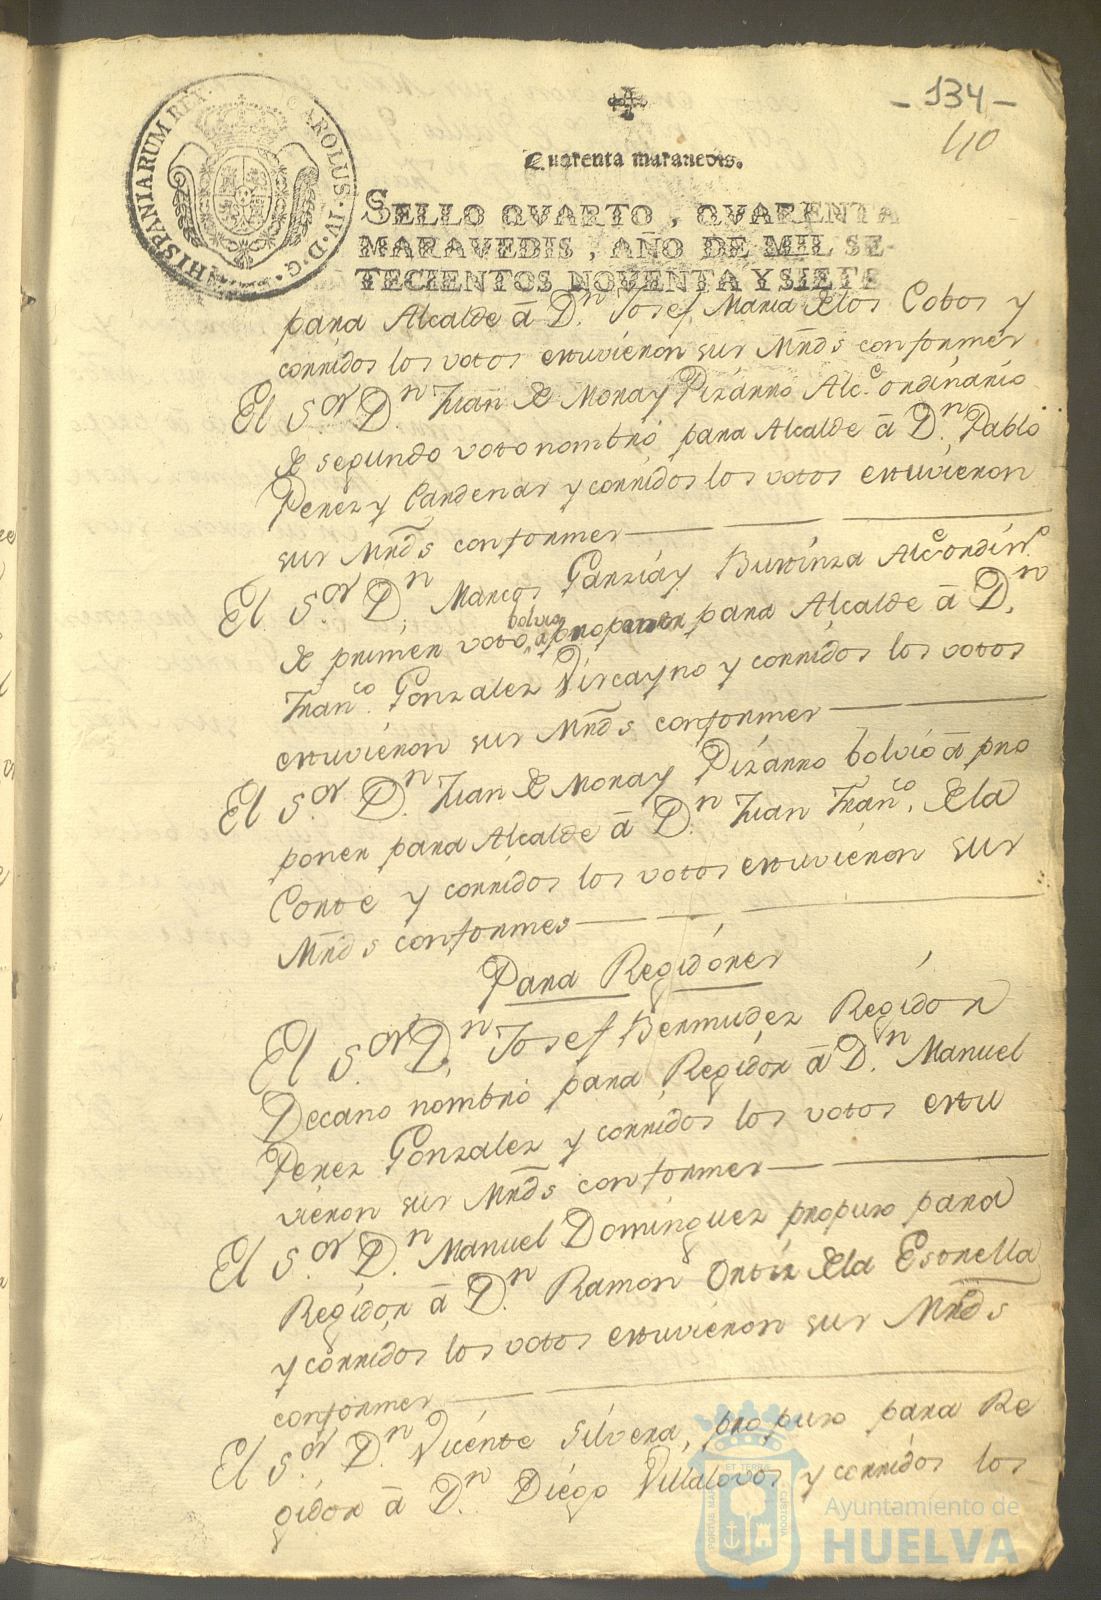 HISPANIARUM REX · CAROLUS · IV · D · G ·
- 134 -
110
Quarenta maravedis.
SELLO QVARTO, QVARENTA
MARAVEDIS, AÑO DE MIL SE-
TECIENTOS NOVENTA Y SIETE
para Alcalde â D.n Josef Maria delos Cobos y
corridos los votos estuvieron sus Mrds conformes
El S.or D.n Juan de Mora y Pizarro Alc.e ordinario
de segundo voto nombró para Alcalde â D.n Pablo
Perez y Cardenas y corridos los votos estuvieron
sus Mrds conformes
El S.or D.n Marcos Garzia y Bustinza Alc.e ordin.o
de primer voto bolvio a proponer para Alcalde â D.n
Fran.co Gonzalez Viscayno y corridos los votos
estuvieron sus Mrds conformes
El S.or D.n Juan de Mora y Pizarro bolvio â pro
poner para Alcalde â D.n Juan Fran.co dela
Corte y corridos los votos estuvieron sus
Mrds conformes
Para Regidores
El S.or D.n Josef Bermudez Regidor
Decano nombró para Regidor â D.n Manuel
Perez Gonzalez y corridos los votos estu
vieron sus Mrds conformes
El S.or D.n Manuel Dominguez propuso para
Regidor â D.n Ramon Ortiz dela Estrella
y corridos los votos estuvieron sus Mrds
conformes
El S.or D.n Vicente Silvera, propuso para Re
gidor â D.n Diego Villalovos y corridos los
Ayuntamiento de
HUELVA